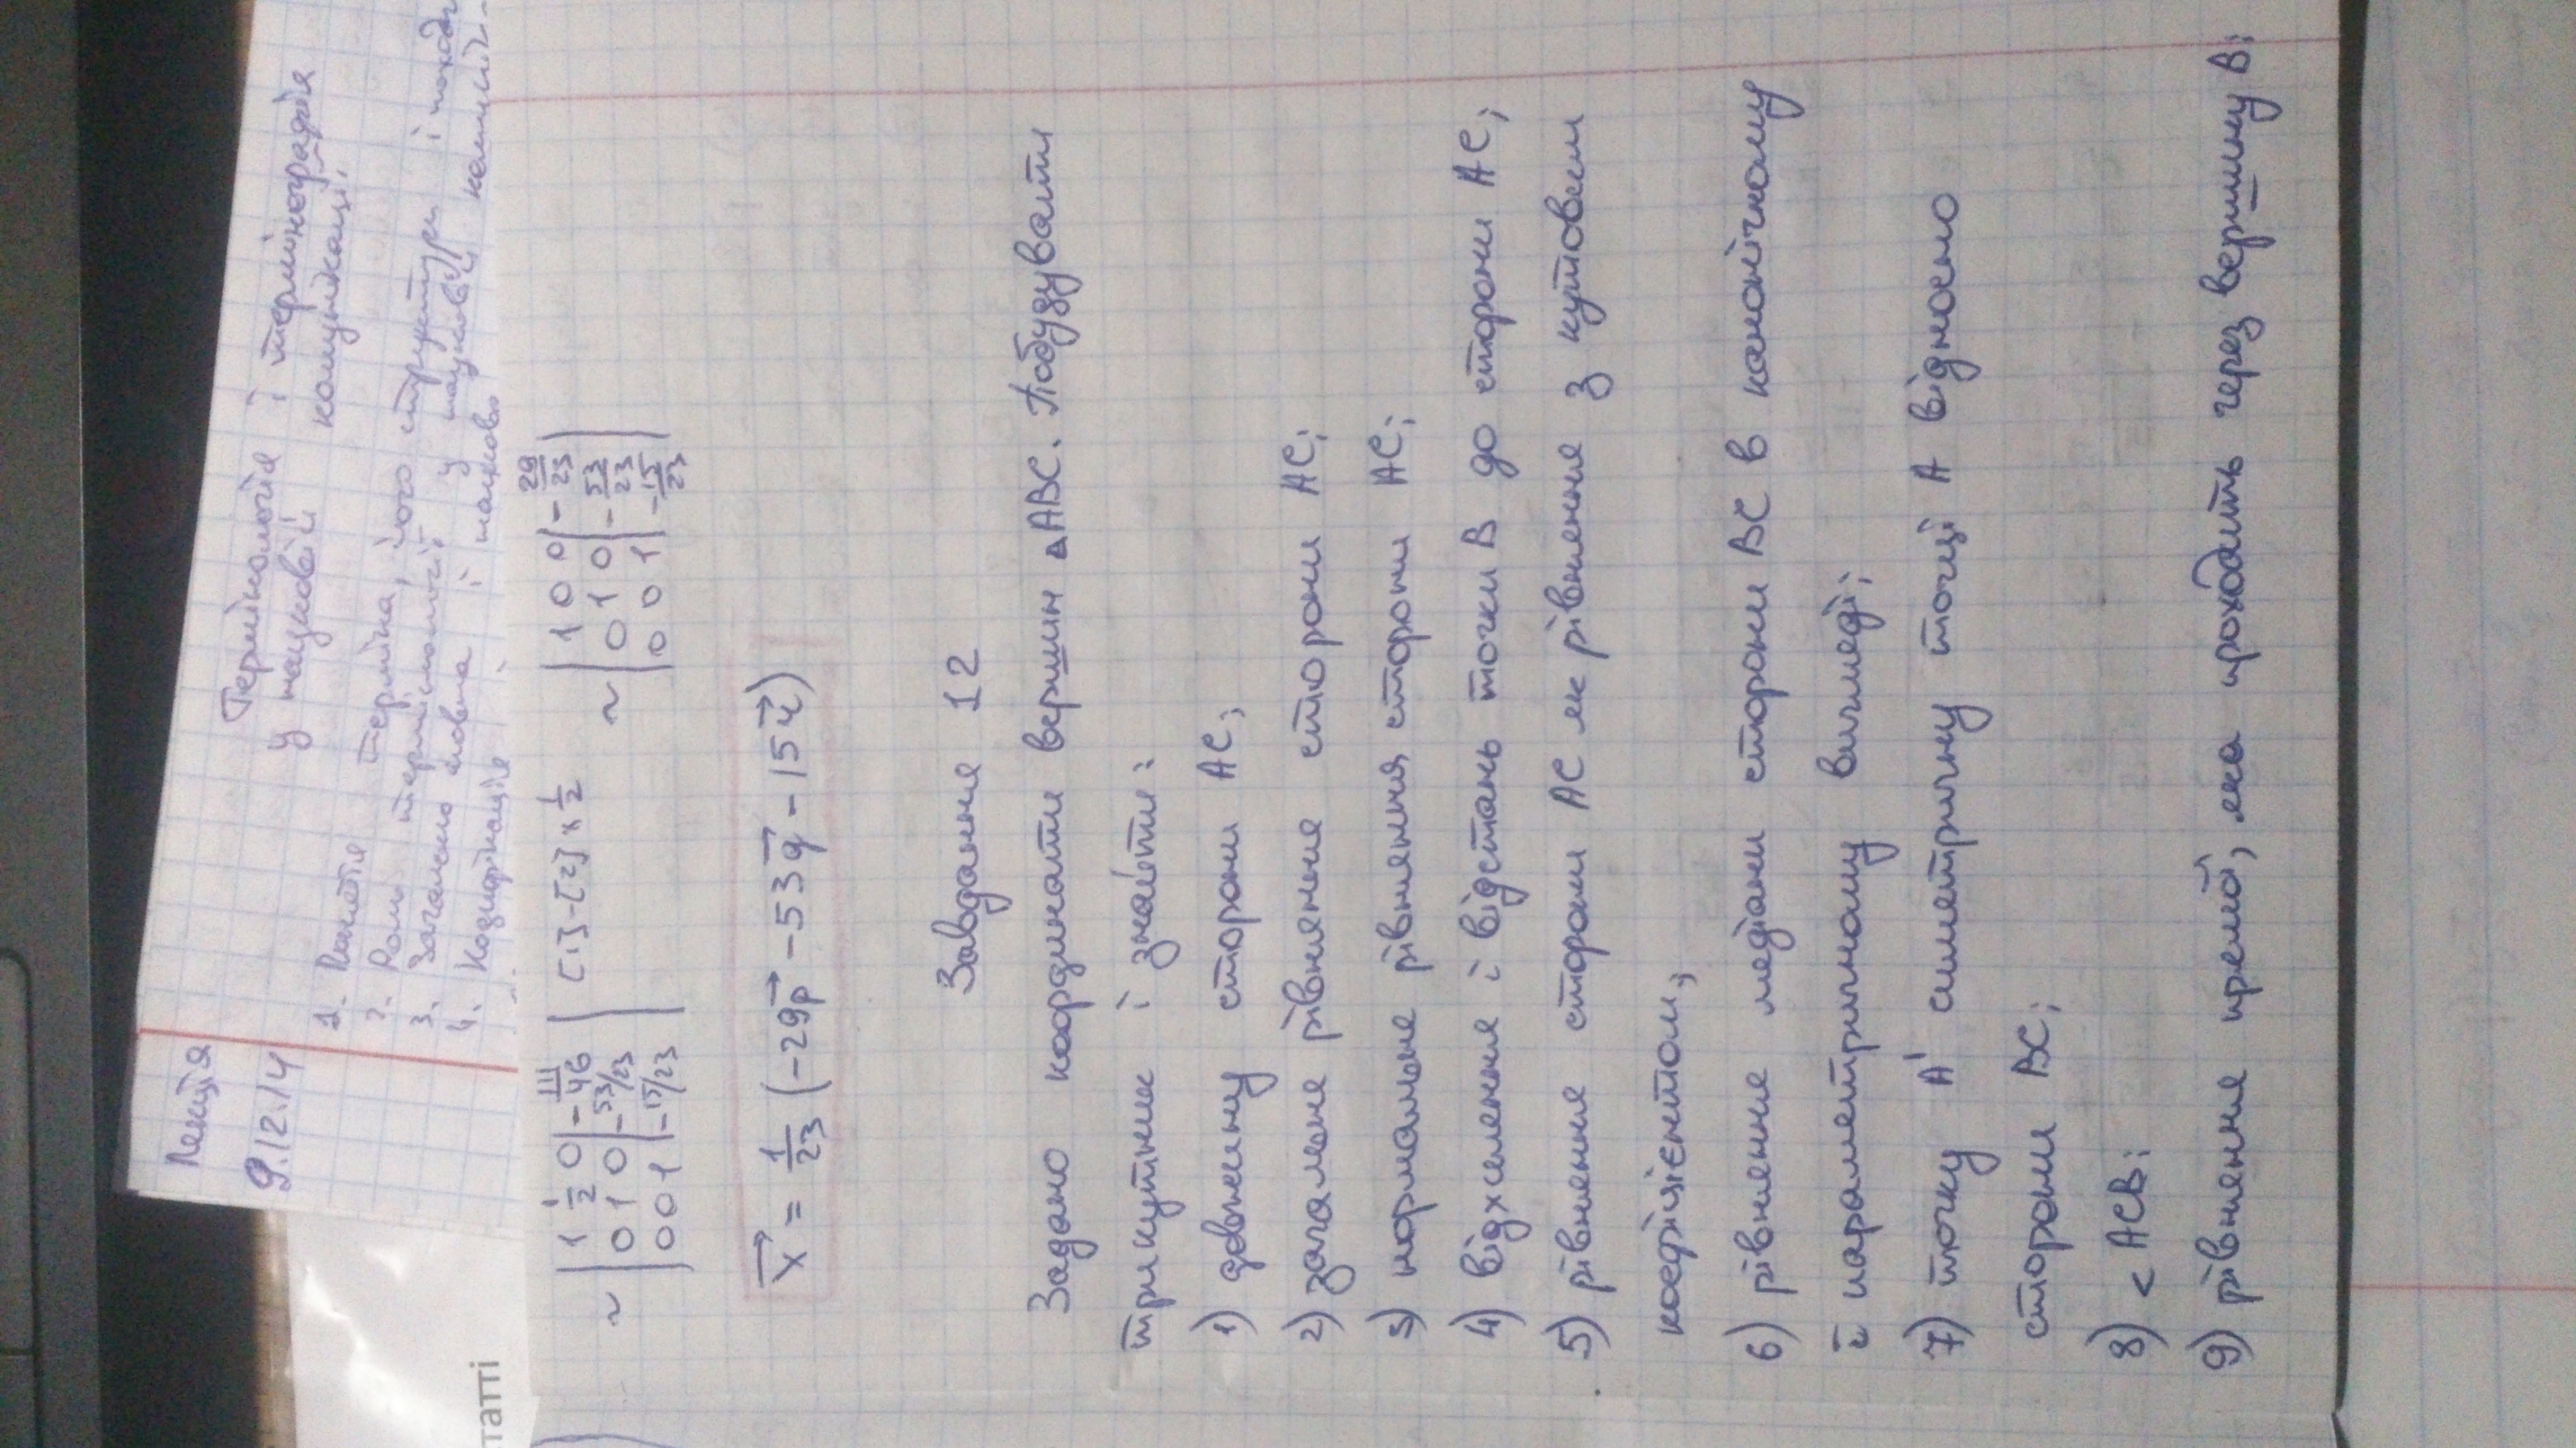 Лекція
9.12.14
Термінологія і термінографія
у науковій комунікації
1. Поняття терміна, його структури і поход
2. Роль термінології у науковій комуніка-
3. Загально мовна і наукова
4. Кодифікація
татті
~ | 1 1/2 0 | -111/46 | [1]-[2]×1/2 ~ | 1 0 0 | -29/23 |
| 0 1 0 | -53/23 | | 0 1 0 | -53/23 |
| 0 0 1 | -15/23 | | 0 0 1 | -15/23 |
x = 1/23 (-29p - 53q - 15r)
Завдання 12
Задано координати вершин ΔABC. Побудувати
трикутник і знайти:
1) довжину сторони AC;
2) загальне рівняння сторони AC;
3) нормальне рівняння сторони AC;
4) відхилення і відстань точки B до сторони AC;
5) рівняння сторони AC як рівняння з кутовим
коефіцієнтом;
6) рівняння медіани сторони BC в канонічному
і параметричному вигляді;
7) точку A' симетричну точці A відносно
сторони BC;
8) < ACB;
9) рівняння прямої, яка проходить через вершину B;